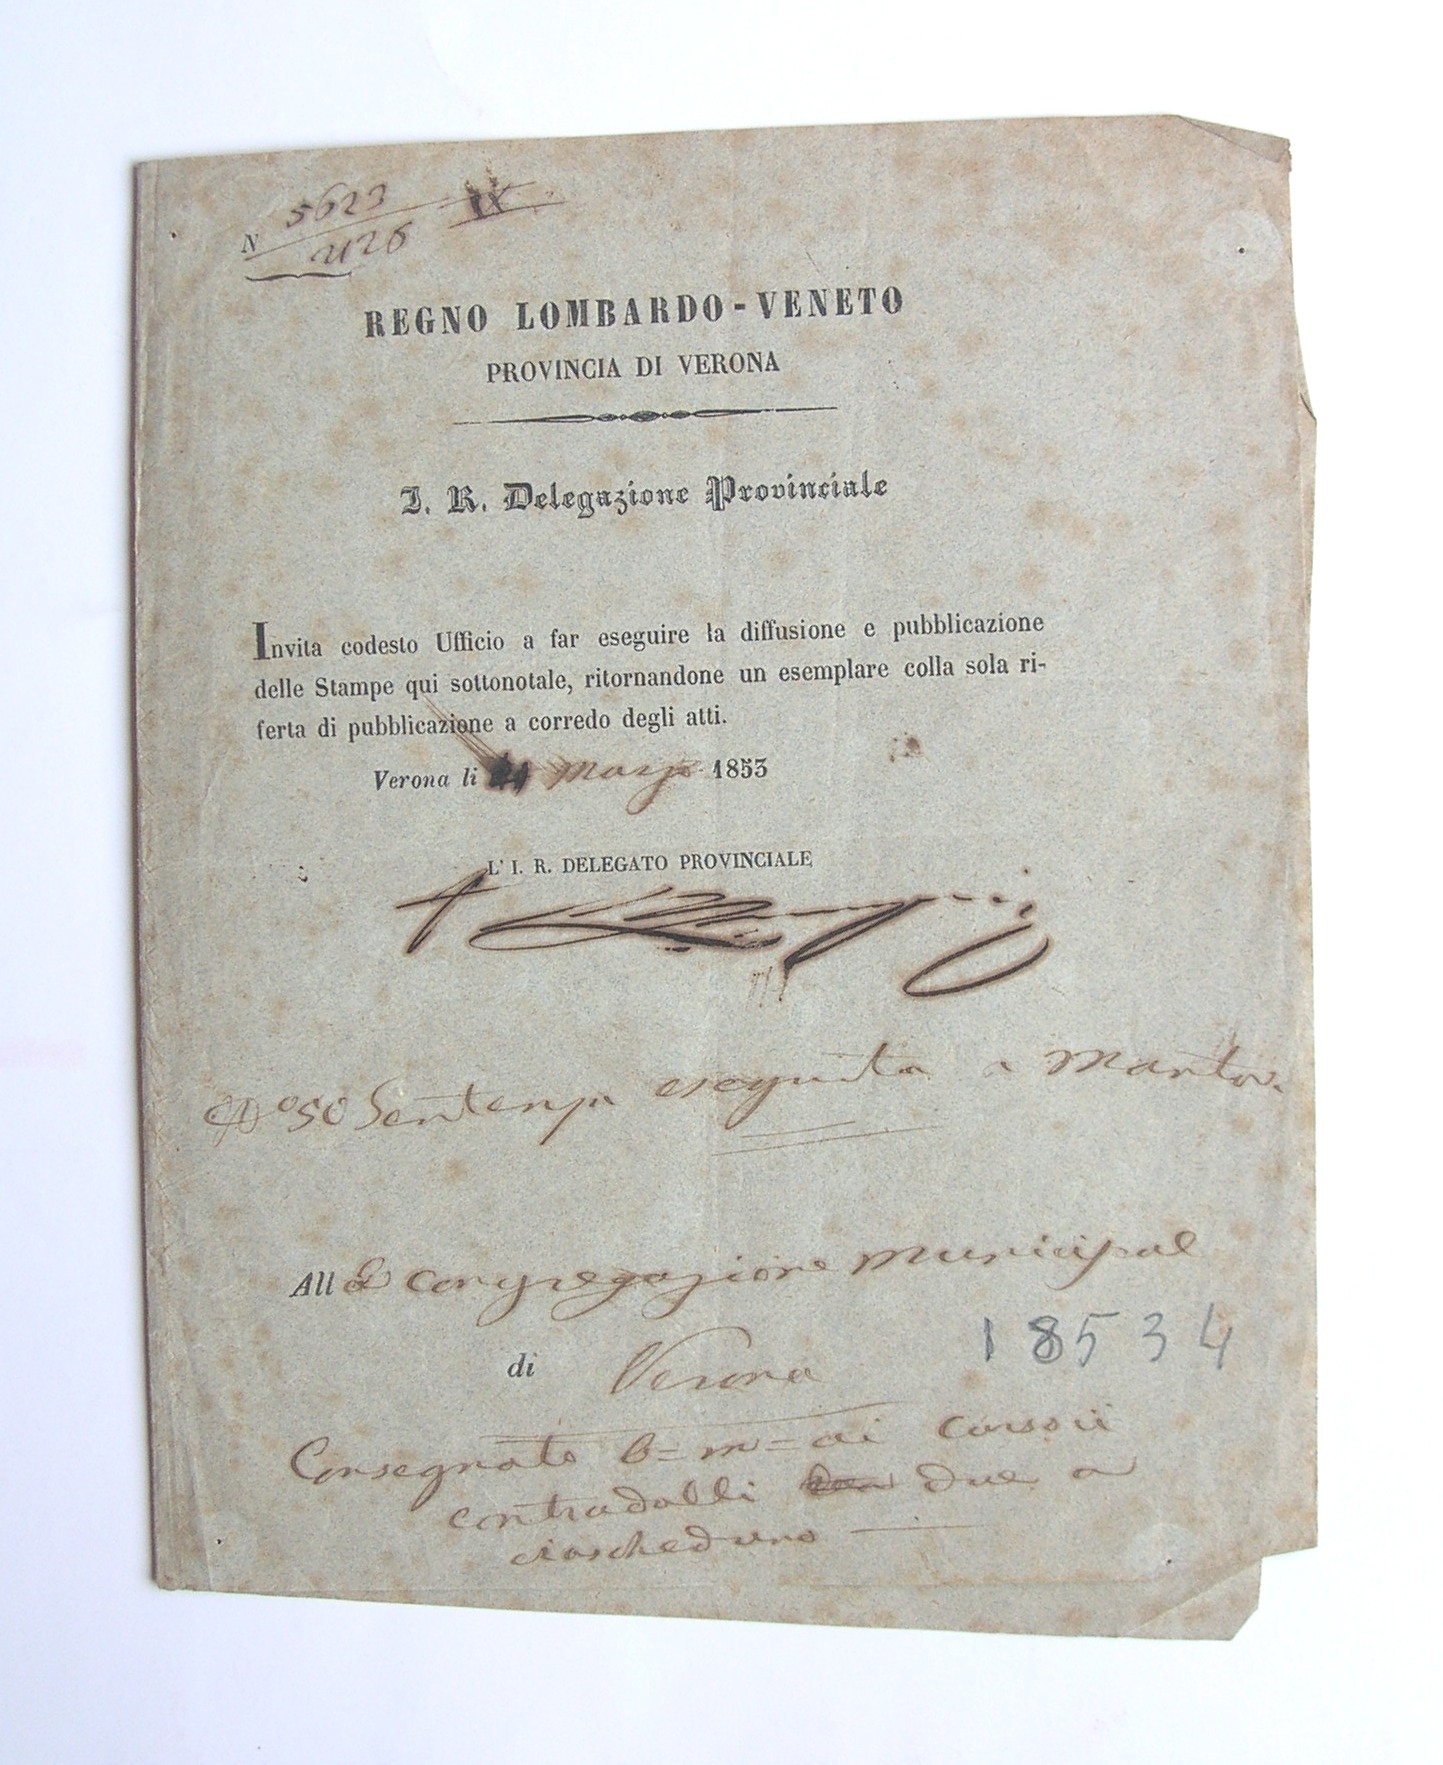 5623 IX
N 2126
REGNO LOMBARDO-VENETO
PROVINCIA DI VERONA
I. R. Delegazione Provinciale
Invita codesto Ufficio a far eseguire la diffusione e pubblicazione
delle Stampe qui sottonotate, ritornandone un esemplare colla sola ri-
ferta di pubblicazione a corredo degli atti.
Verona li Marzo 1853
L' I. R. DELEGATO PROVINCIALE
N° 50 Sentenza eseguita a Mantova
Alla Congregazione Municipale
18534
di Verona
Consegnato 6= m= ai Corsoii
contradalli due a
ciascheduno